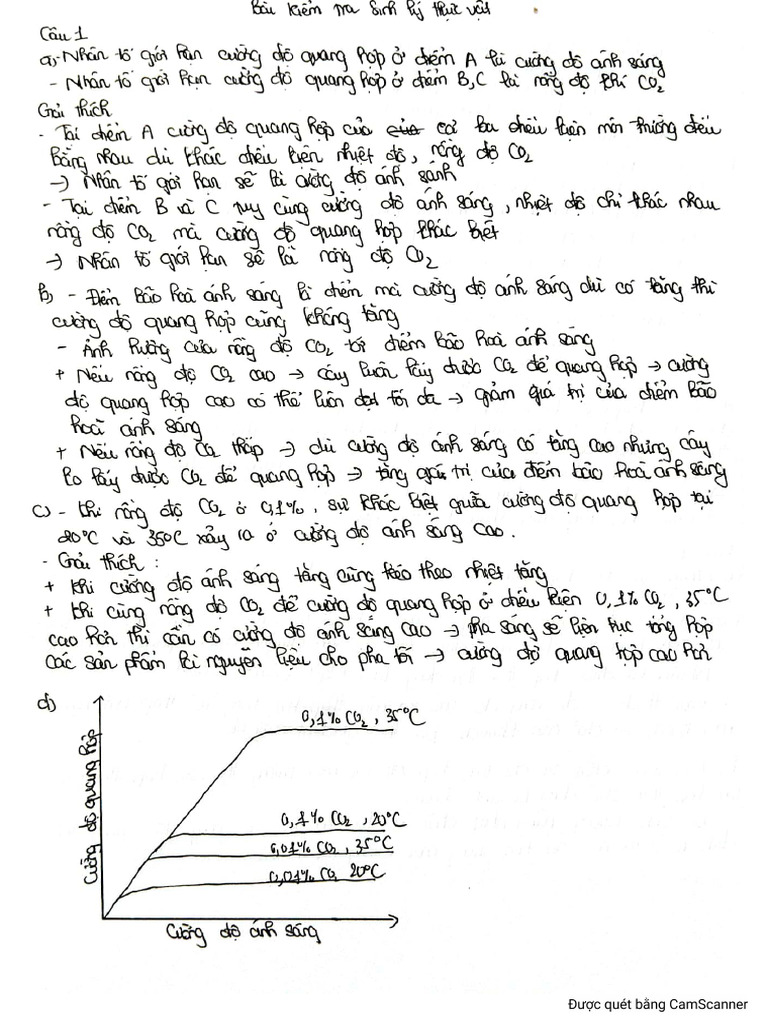 Bài kiểm tra Sinh lý thực vật
Câu 1
a) - Nhân tố giới hạn cường độ quang hợp ở điểm A là cường độ ánh sáng
- Nhân tố giới hạn cường độ quang hợp ở điểm B, C là nồng độ khí CO2
Giải thích
- Tại điểm A cường độ quang hợp của cả ba điều kiện môi trường đều
bằng nhau dù khác điều kiện nhiệt độ, nồng độ CO2
→ Nhân tố giới hạn sẽ là cường độ ánh sánh
- Tại điểm B và C tuy cùng cường độ ánh sáng, nhiệt độ chỉ khác nhau
nồng độ CO2 mà cường độ quang hợp khác biệt
→ Nhân tố giới hạn sẽ là nồng độ CO2
b) - Điểm bão hoà ánh sáng là điểm mà cường độ ánh sáng dù có tăng thì
cường độ quang hợp cũng không tăng
- Ảnh hưởng của nồng độ CO2 tới điểm bão hoà ánh sáng
+ Nếu nồng độ CO2 cao → cây luôn lấy được CO2 để quang hợp → cường
độ quang hợp cao có thể luôn đạt tối đa → giảm giá trị của điểm bão
hoà ánh sáng
+ Nếu nồng độ CO2 thấp → dù cường độ ánh sáng có tăng cao nhưng cây
ko lấy được CO2 để quang hợp → tăng giá trị của điểm bão hoà ánh sáng
c) - Khi nồng độ CO2 ở 0,1%, sự khác biệt giữa cường độ quang hợp tại
20°C và 35°C xảy ra ở cường độ ánh sáng cao.
- Giải thích :
+ Khi cường độ ánh sáng tăng cũng kéo theo nhiệt tăng
+ Khi cùng nồng độ CO2 để cường độ quang hợp ở điều kiện 0,1% CO2, 35°C
cao hơn thì cần có cường độ ánh sáng cao → pha sáng sẽ liên tục tổng hợp
các sản phẩm là nguyên liệu cho pha tối → cường độ quang hợp cao hơn
d)
0,1% CO2, 35°C
0,1% CO2, 20°C
0,01% CO2, 35°C
0,01% CO2 20°C
Cường độ quang hợp
Cường độ ánh sáng
Được quét bằng CamScanner